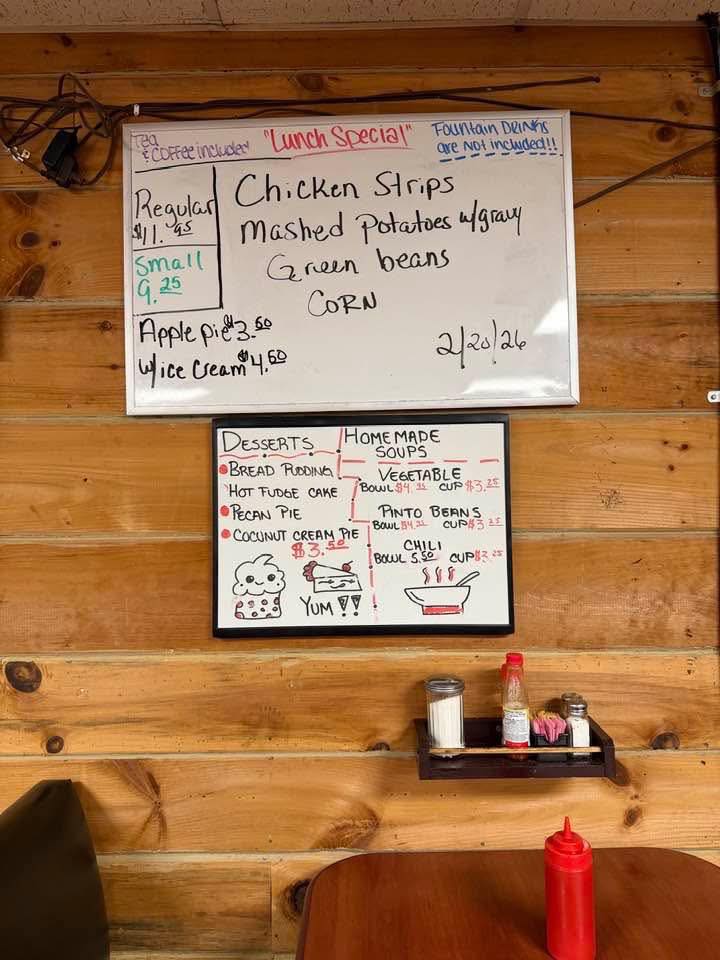 Tea
& Coffee included
"Lunch Special"
Fountain Drinks
are Not included!!
Regular
$11.95
Small
9.25
Chicken Strips
Mashed Potatoes w/gravy
Green beans
Corn
Apple pie $3.50
w/ice Cream $4.50
2/20/26
DESSERTS
BREAD PUDDING
HOT FUDGE CAKE
PECAN PIE
COCUNUT CREAM PIE
$3.50
YUM!!
HOMEMADE
SOUPS
VEGETABLE
BOWL $4. CUP $3.25
PINTO BEANS
BOWL $4. CUP $3.25
CHILI
BOWL 5.50 CUP $3.25